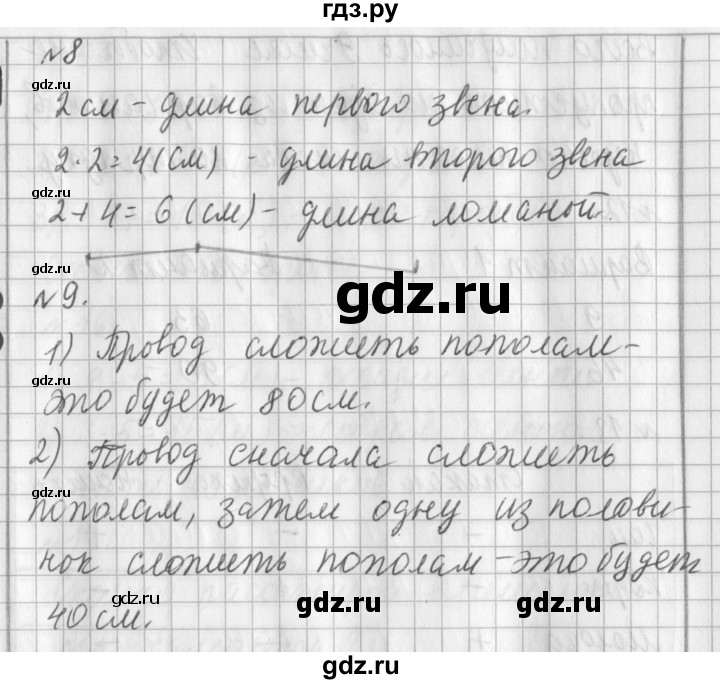 гдз.ру
№8
gdz.ru
2 см - длина первого звена.
gdz.ru
2·2=4(см) - длина второго звена
gdz.ru
2+4=6(см)- длина ломаной.
gdz.ru
gdz.ru
№9.
1) Провод сложить пополам-
gdz.ru
это будет 80 см.
2) Провод сначала сложить
gdz.ru
пополам, затем одну из полови-
нок сложить пополам -это будет
40 см.
gdz.ru
gdz.ru
gdz.ru
gdz.ru